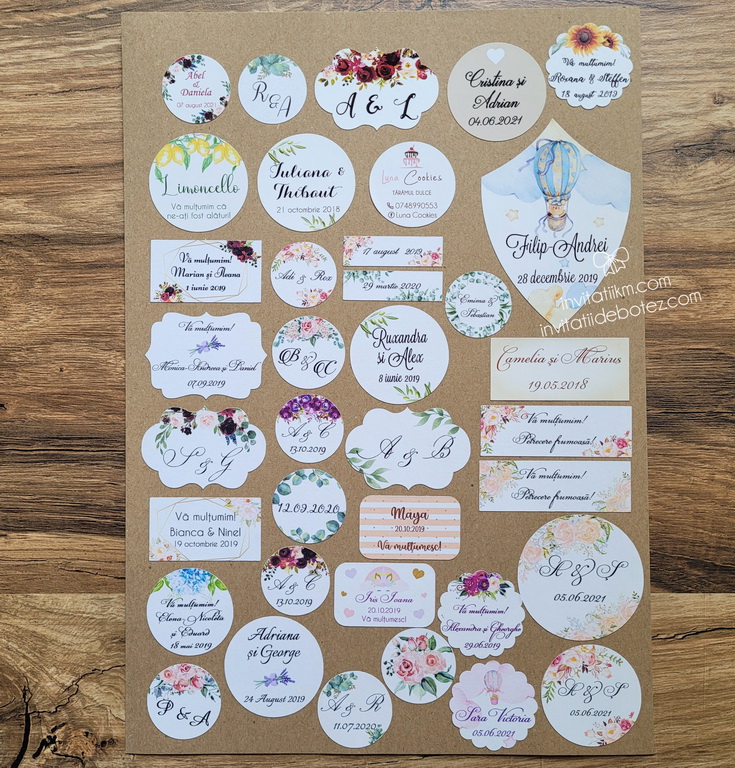 Abel
&
Daniela
07 august 2021
R&A
A & L
Cristina și
Adrian
04.06.2021
Vă mulțumim!
Roxana & Steffen
18 august 2019
Limoncello
Vă mulțumim că
ne-ați fost alături!
Iuliana &
Thibaut
21 octombrie 2018
Luna Cookies
TĂRÂMUL DULCE
0748990553
Luna Cookies
Filip-Andrei
28 decembrie 2019
invitatiikm.com
invitatiidebotez.com
Vă mulțumim!
Marian și Ileana
1 iunie 2019
Adi & Rox
17 august 2019
29 martie 2020
Emma &
Sebastian
Vă mulțumim!
Monica-Andreea și Daniel
07.09.2019
B & C
Ruxandra
și Alex
8 iunie 2019
Camelia și Marius
19.05.2018
S & G
A & C
13.10.2019
A & B
Vă mulțumim!
Petrecere frumoasă!
Vă mulțumim!
Petrecere frumoasă!
Vă mulțumim!
Bianca & Ninel
19 octombrie 2019
12.09.2020
Maya
20.10.2019
Vă mulțumesc!
Vă mulțumim!
Elena-Nicoleta
și Eduard
18 mai 2019
A & C
13.10.2019
Iris Ioana
20.10.2019
Vă mulțumesc!
Vă mulțumim!
Alexandra și Gheorghe
29.06.2019
05.06.2021
P & A
Adriana
și George
24 August 2019
A & R
11.07.2020
Sara Victoria
05.06.2021
05.06.2021